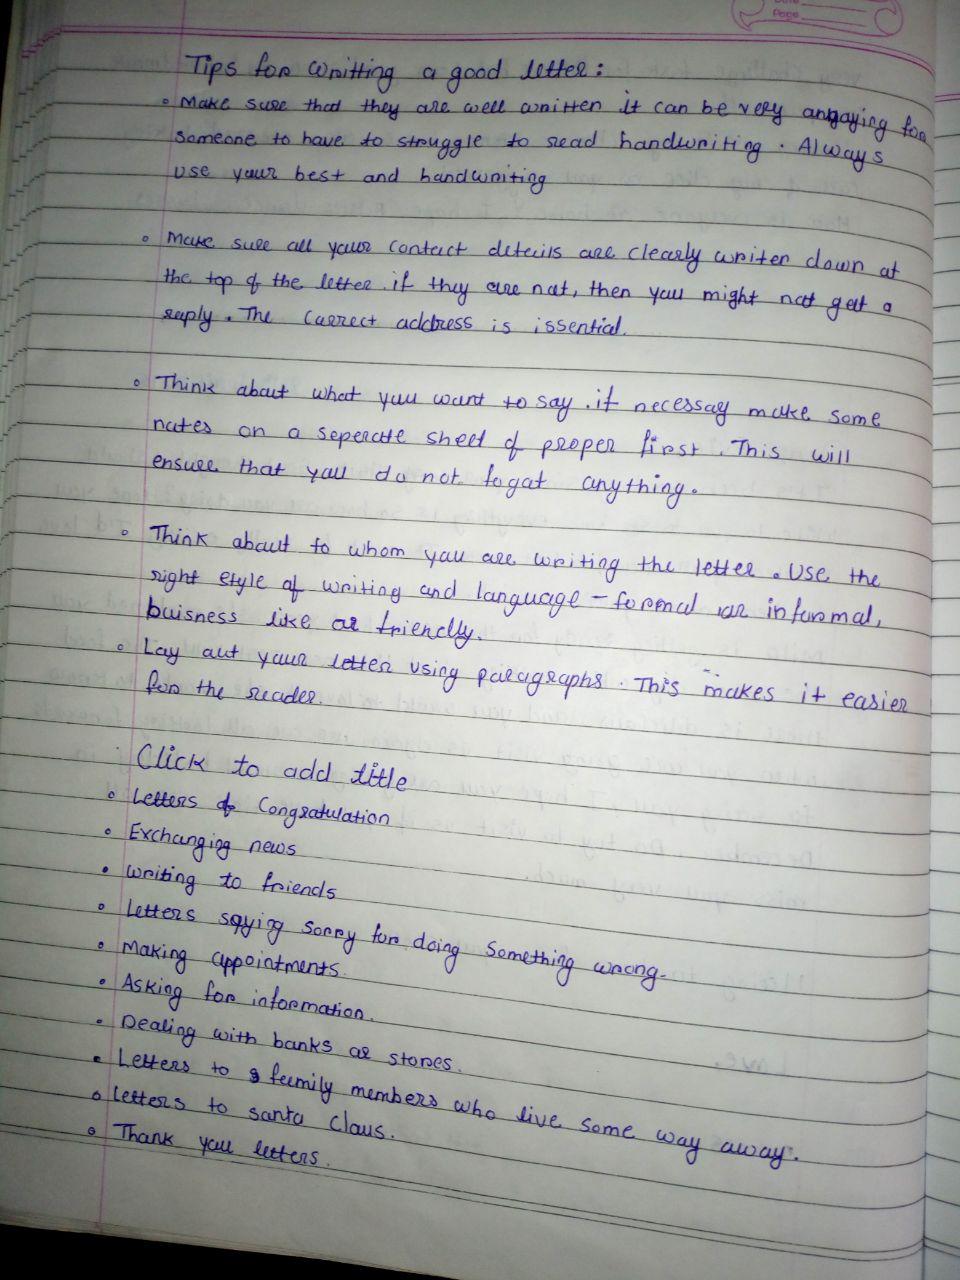 Date
Page
Tips for Writting a good letter:
• Make sure that they are well written it can be very anyaying for
someone to have to struggle to read handwriting. Always
use your best and handwriting
• Make sure all your contact details are clearly writen down at
the top of the letter. if they are not, then you might not get a
reply. The Currect address is issential.
• Think about what you want to say. if necessay make some
notes on a seperate sheet of proper first. This will
ensure that you do not fogat anything.
• Think about to whom you are writing the letter. Use the
right style of writing and language - formal or informal,
buisness like or friendly.
• Lay out your letter using paragraphs. This makes it easier
for the reader.
Click to add title
• Letters of Congratulation
• Exchanging news
• Writing to friends
• Letters saying sorry for doing Something wrong.
• Making appointments.
• Asking for information.
• Dealing with banks or stores.
• Letters to family members who live some way away.
• Letters to santa Claus.
• Thank you letters.